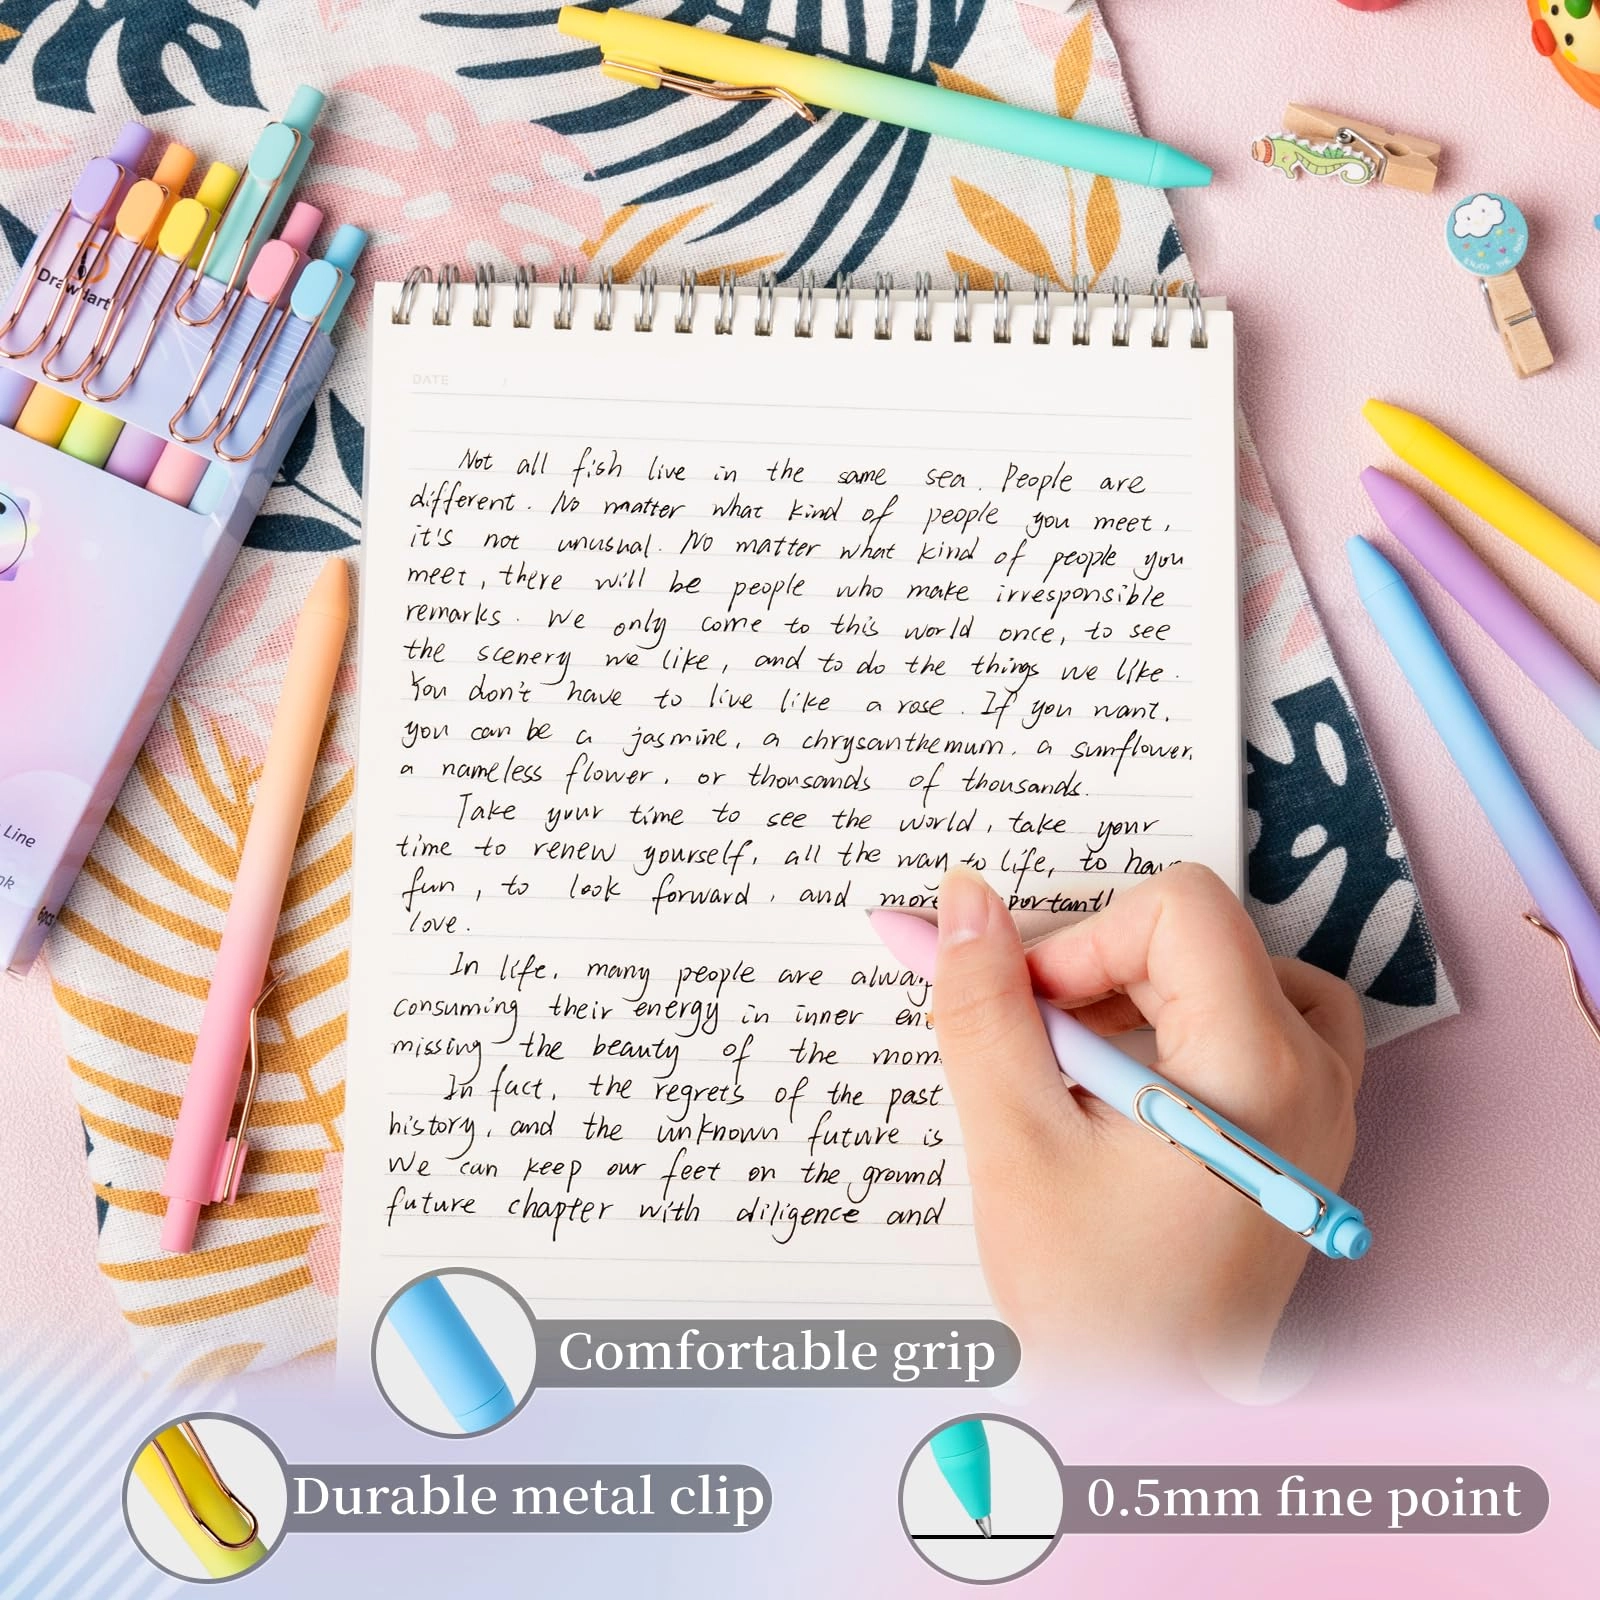 Drawdart
DATE /
Not all fish live in the same sea. People are
different. No matter what kind of people you meet,
it's not unusual. No matter what kind of people you
meet, there will be people who make irresponsible
remarks. We only come to this world once, to see
the scenery we like, and to do the things we like.
You don't have to live like a rose. If you want,
you can be a jasmine, a chrysanthemum, a sunflower,
a nameless flower, or thousands of thousands.
Take your time to see the world, take your
time to renew yourself, all the way to life, to have
fun, to look forward, and more
love.
In life, many people are
consuming their energy in inner
missing the beauty of the
In fact, the regrets of the past
history, and the unknown future is
We can keep our feet on the ground
future chapter with diligence and
Line
6pcs
ENJOY THE RAIN
Comfortable grip
Durable metal clip
0.5mm fine point